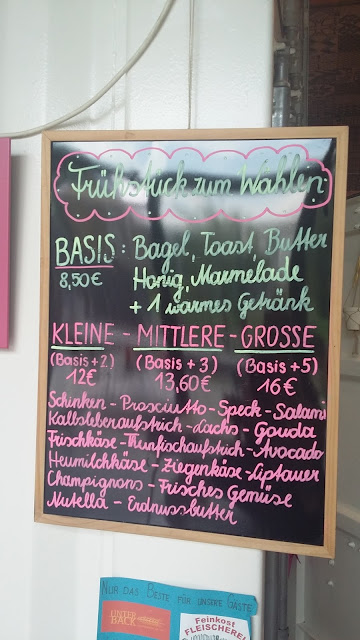 Frühstück zum Wählen
BASIS: Bagel, Toast, Butter
8,50€ Honig, Marmelade
+ 1 warmes Getränk
KLEINE - MITTLERE - GROSSE
(Basis + 2) (Basis + 3) (Basis + 5)
12€ 13,60€ 16€
Schinken - Prosciutto - Speck - Salami
Kalbsleberaufstrich - Lachs - Gouda
Frischkäse - Thunfischaufstrich - Avocado
Heumilchkäse - Ziegenkäse - Liptauer
Champignons - Frisches Gemüse
Nutella - Erdnussbutter
NUR DAS BESTE FÜR UNSERE GÄSTE
UNTER
BACK
Feinkost
FLEISCHEREI